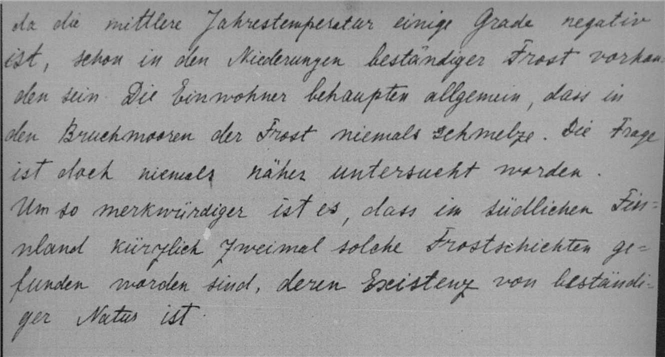 da die mittlere Jahrestemperatur einige Grade negativ
ist, schon in den Niederungen beständiger Frost vorhan
den sein. Die Einwohner behaupten allgemein, dass in
den Bruchmooren der Frost niemals schmelze. Die Frage
ist doch niemals näher untersucht worden.
Um so merkwürdiger ist es, dass im südlichen Fin-
nland kürzlich zweimal solche Frostschichten ge=
funden worden sind, deren Existenz von beständi-
ger Natur ist.